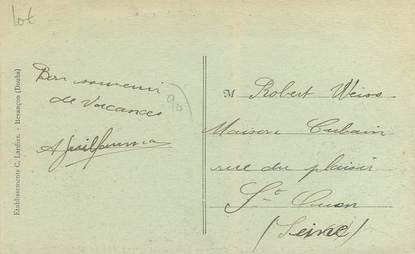 lot
Bon souvenir
de Vacances
90
Etablissements C. Lardier. - Besançon (Doubs)
M Robert Weiss
Maison Cubain
rue du plaisir
St Ouen
(Seine)